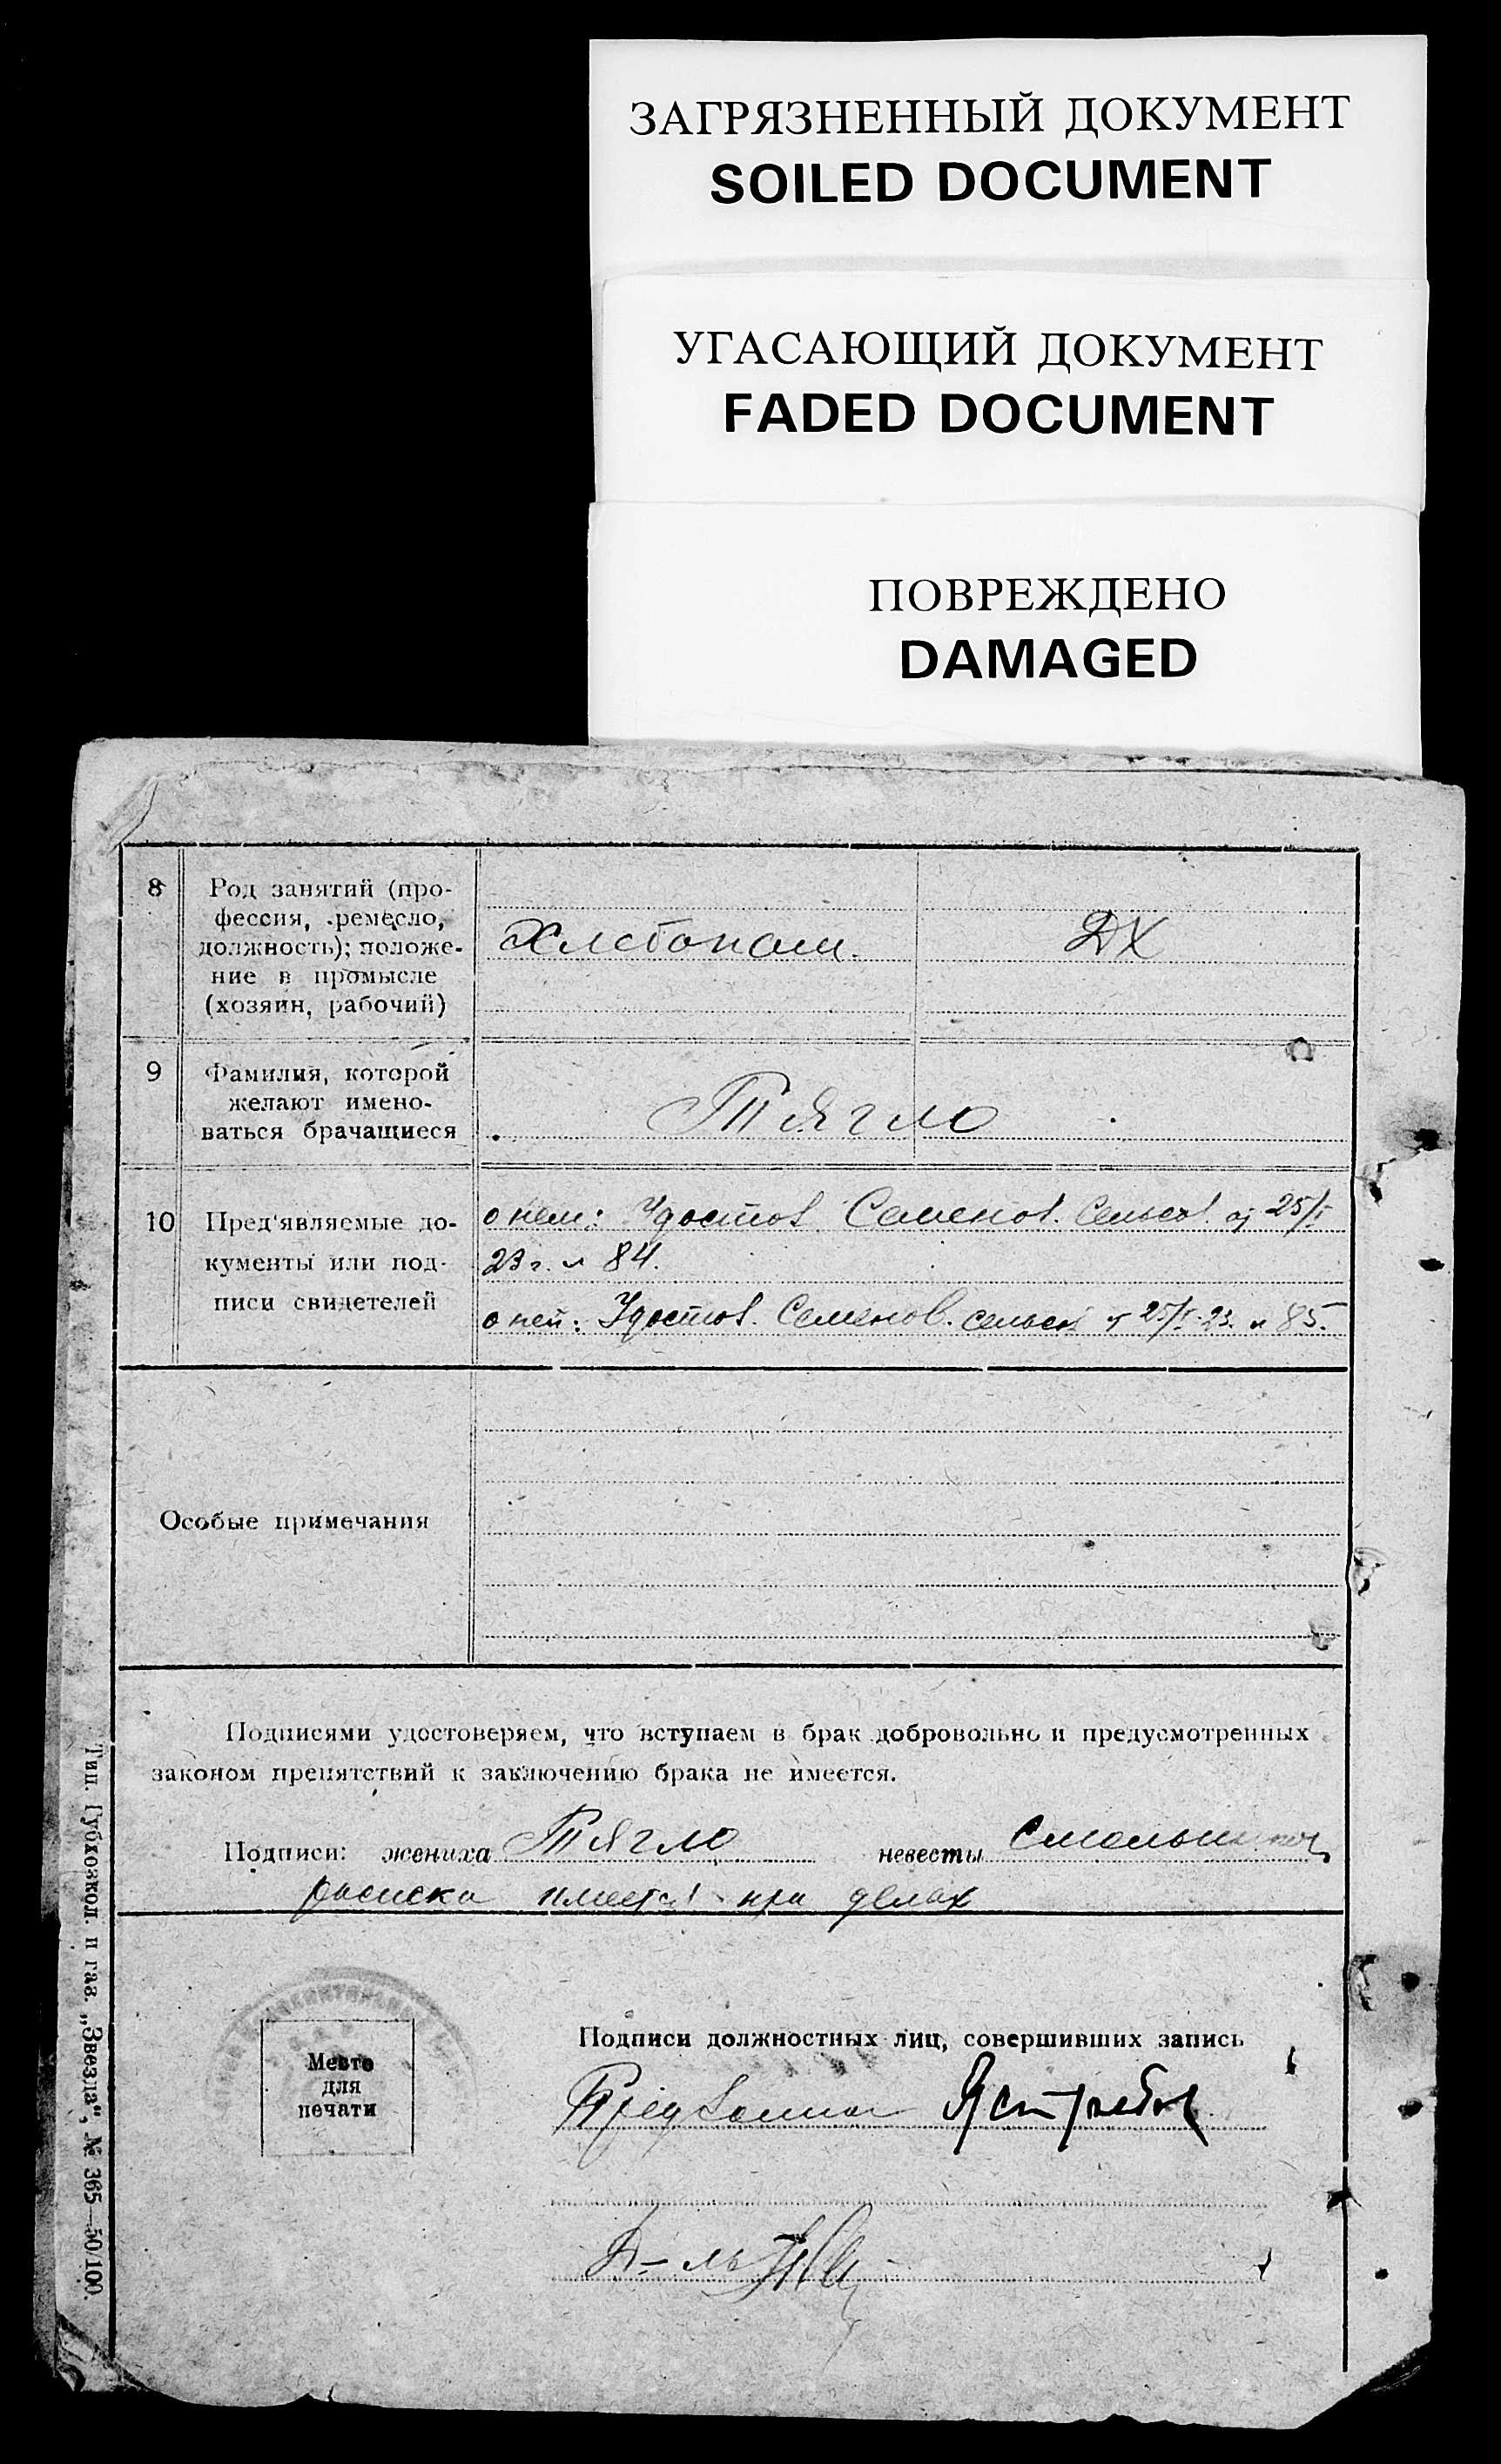 ЗАГРЯЗНЕННЫЙ ДОКУМЕНТ
SOILED DOCUMENT
УГАСАЮЩИЙ ДОКУМЕНТ
FADED DOCUMENT
ПОВРЕЖДЕНО
DAMAGED
8
Род занятий (про-
фессия, ремесло,
должность); положе-
ние в промысле
(хозяин, рабочий)
Хлебопаш.
ДХ
9
Фамилия, которой
желают имено-
ваться брачащиеся
Тягло
10
Пред'являемые до-
кументы или под-
писи свидетелей
о нем: Удостов. Семенов. Сельсов. от 25/I
23 г. № 84.
о ней: Удостов. Семенов. сельсов. от 25/I-23. № 85.
Особые примечания
Подписями удостоверяем, что вступаем в брак добровольно и предусмотренных
законом препятствий к заключению брака не имеется.
Подписи: жениха Тягло невесты
расписка имеется при делах
Место
для
печати
Подписи должностных лиц, совершивших запись
Ястребов
Д-ль
Тип. Губхозкол. и газ. „Звезда“, № 365—50/100.